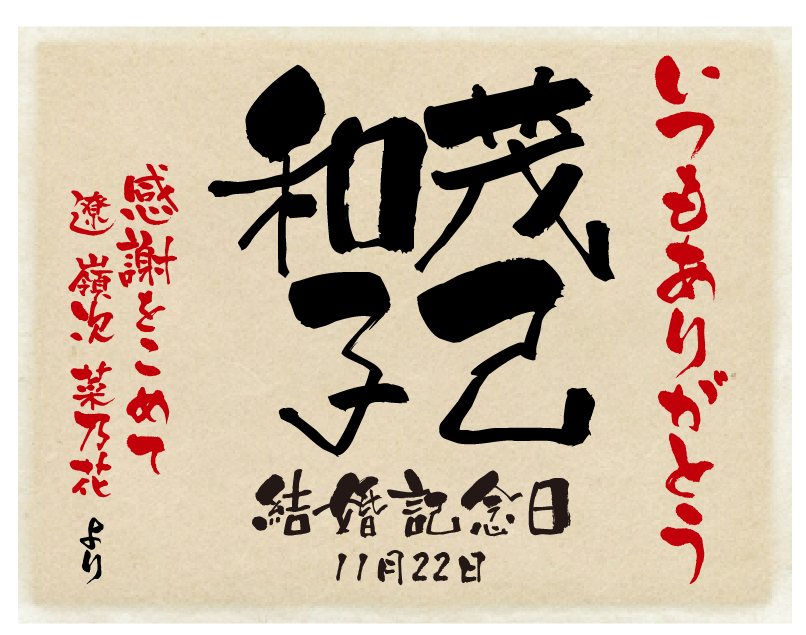 いつもありがとう
茂己
和子
結婚記念日
11月22日
感謝をこめて
遼 嶺次 菜乃花 より